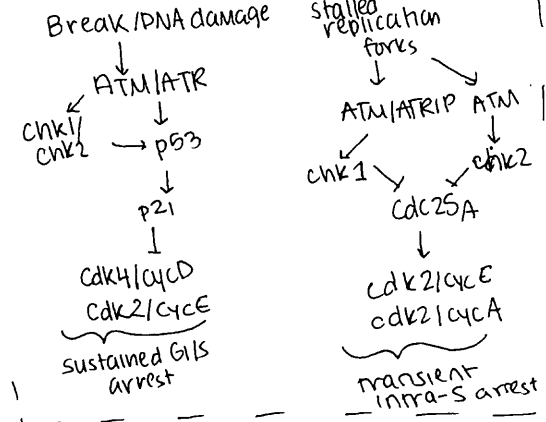 Break/DNA damage
ATM/ATR
Chk1/
Chk2
p53
p21
Cdk4/CycD
Cdk2/CycE
sustained G1/S
arrest
stalled
replication
forks
ATM/ATRIP ATM
chk1
chk2
Cdc25A
cdk2/cycE
cdk2/cycA
transient
intra-S arrest